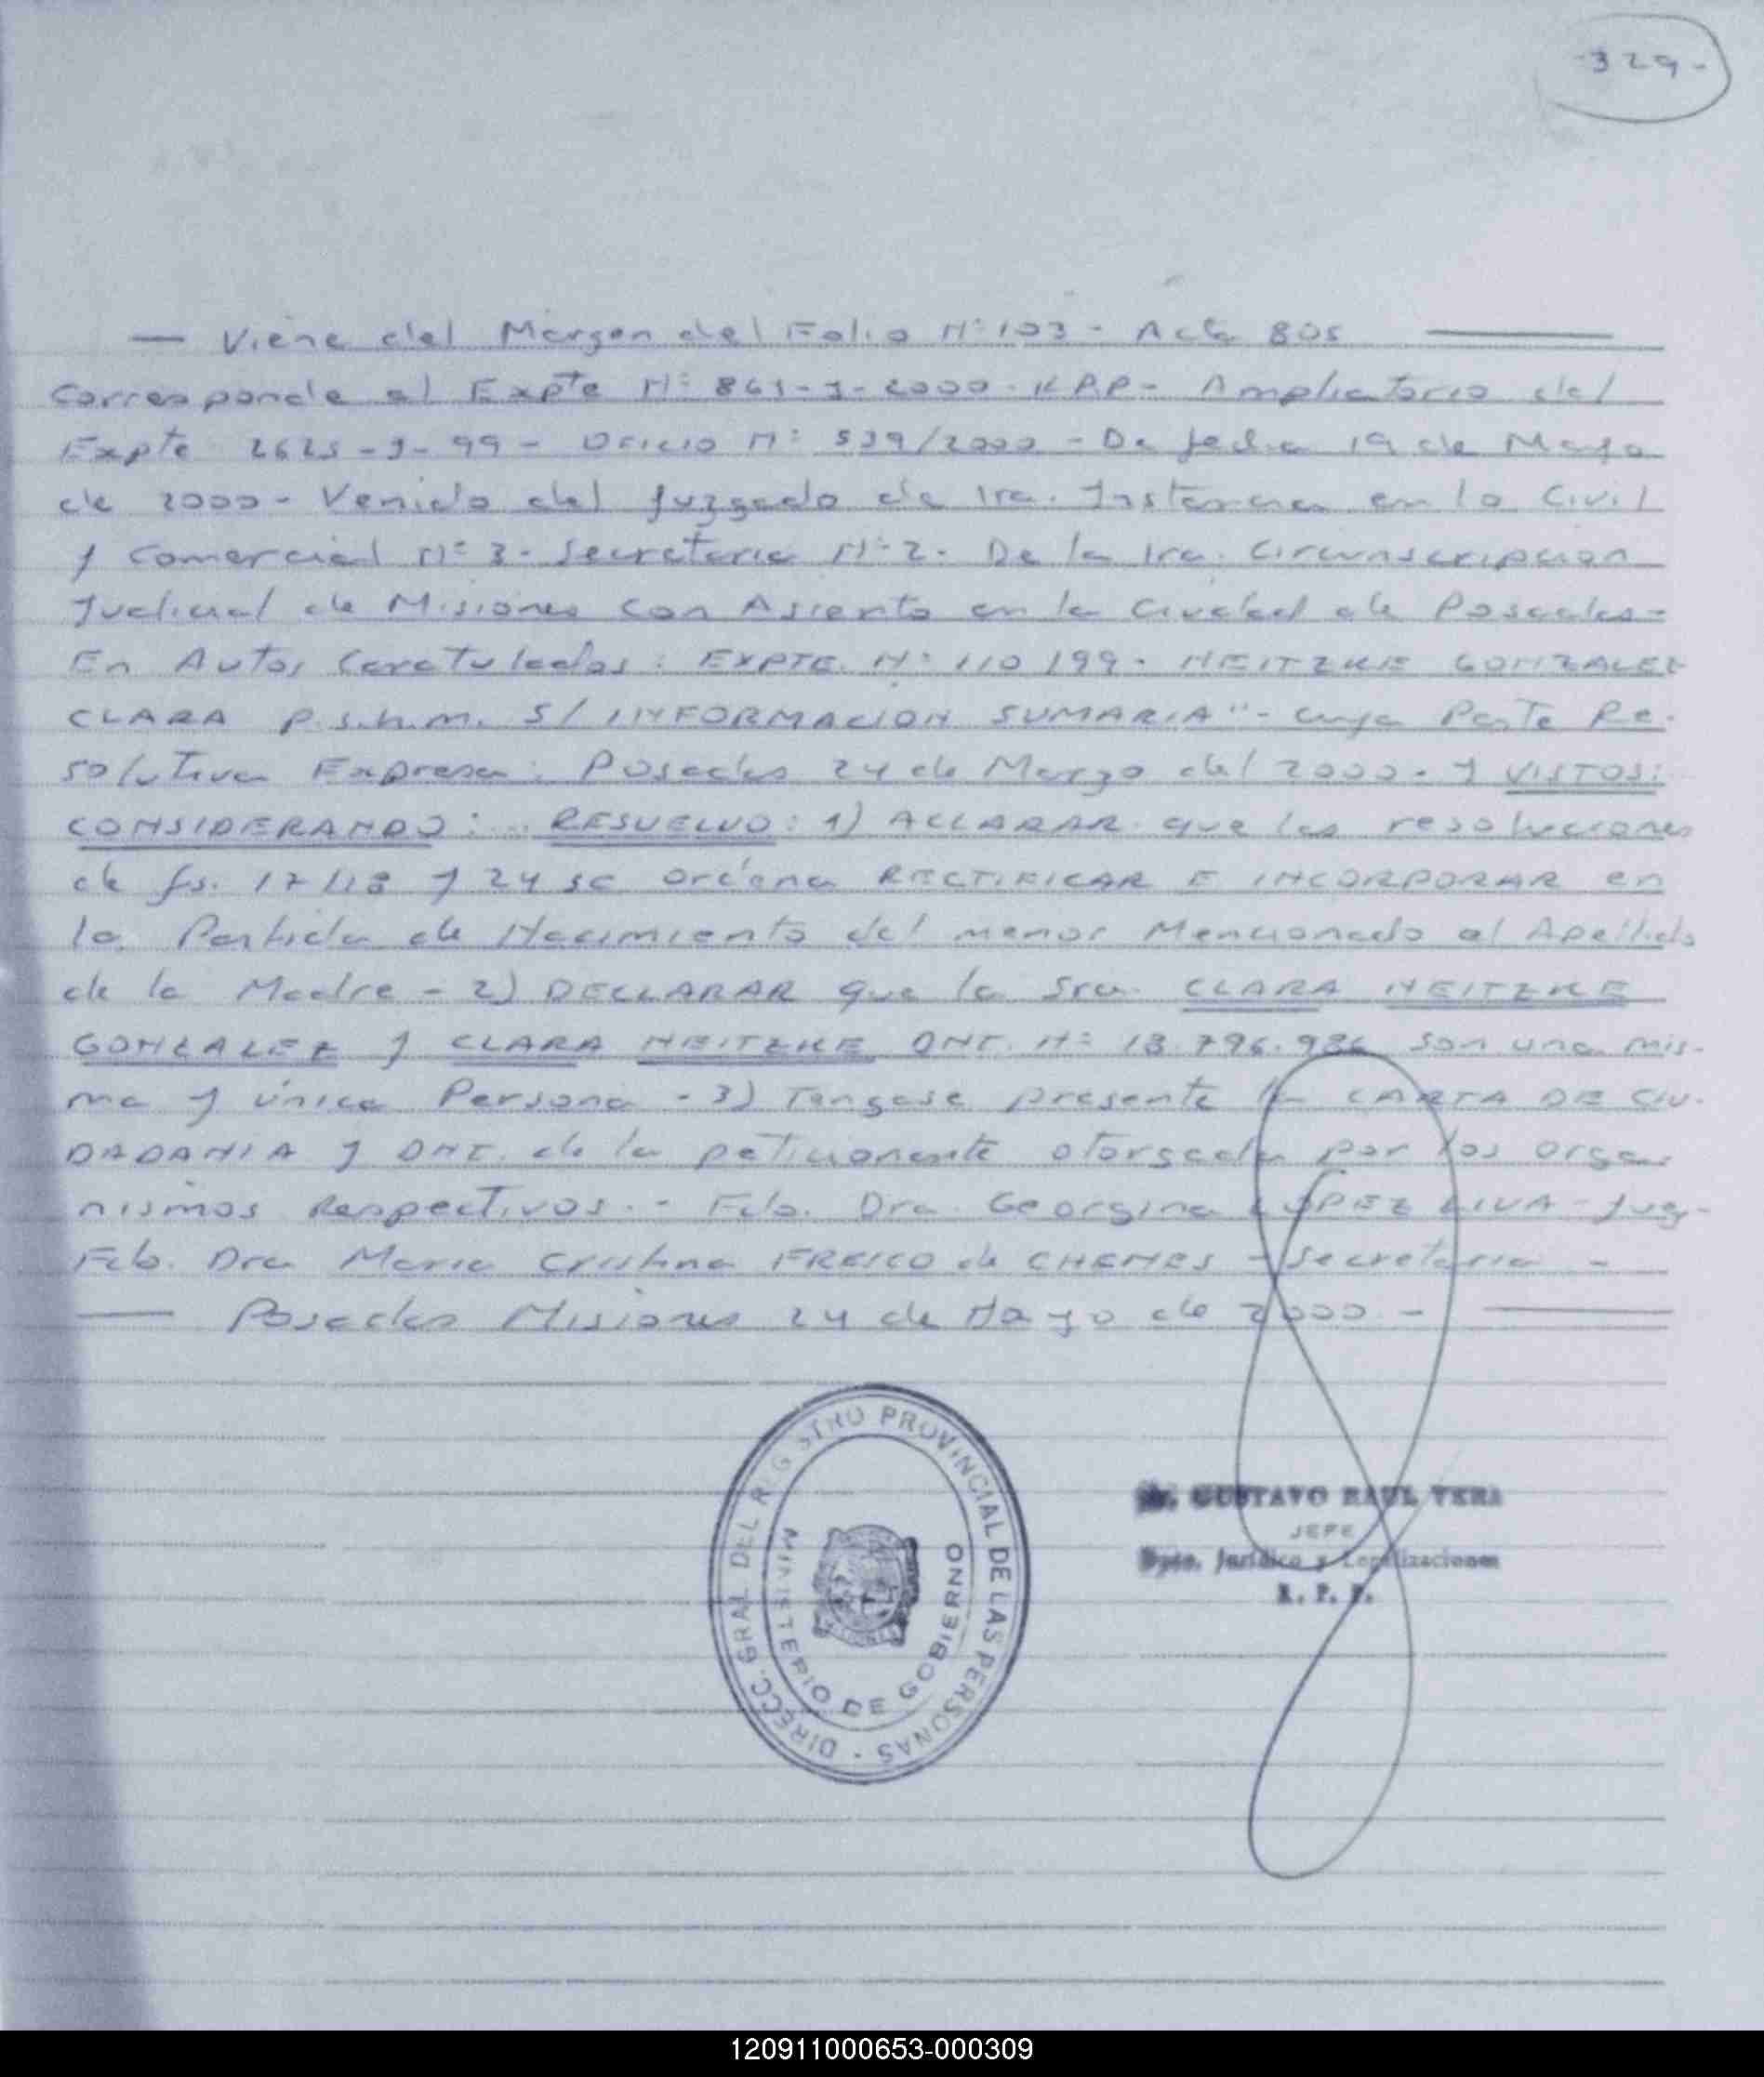 -329-
— Viene del Margen del Folio Nº 103 - Acta 805 —
Corresponde al Expte Nº 861-J-2000- R.P.P- Ampliatorio del
Expte 2625-J-99- Oficio Nº 539/2000 - De fecha 19 de Mayo
de 2000- Venido del Juzgado de 1ra. Instancia en lo Civil
y Comercial Nº 3- Secretaria Nº 2. De la 1ra. Circunscripcion
Judicial de Misiones con Asiento en la Ciudad de Posadas-
En Autos Caratulados: EXPTE. Nº 110/99- NEITZKE GONZALEZ
CLARA p.s.h.m. S/ INFORMACION SUMARIA"- cuya Parte Re-
solutiva Expresa: Posadas 24 de Marzo del 2000.- Y VISTOS:
CONSIDERANDO:... RESUELVO: 1) ACLARAR que las resoluciones
de fs. 17/18 y 24 se ordena RECTIFICAR E INCORPORAR en
la Partida de Nacimiento del menor Mencionado el Apellido
de la Madre - 2) DECLARAR que la Sra. CLARA NEITZKE
GONZALEZ y CLARA NEITZKE DNI. Nº 18.796.986 son una mis-
ma y única Persona - 3) Tengase presente la CARTA DE CIU-
DADANIA y DNI. de la peticionante otorgada por los orga-
nismos Respectivos.- Fdo. Dra. Georgina LOPEZ LIVA - Juez-
Fdo. Dra Maria Cristina de CHEMES - Secretaria -
— Posadas Misiones 24 de Mayo de 2000.- —
DIRECC. GRAL DEL REGISTRO PROVINCIAL DE LAS PERSONAS -
MINISTERIO DE GOBIERNO
GUSTAVO RAUL VERA
JEFE
Dpto. Jurídico y Legalizaciones
R. P. P.
120911000653-000309